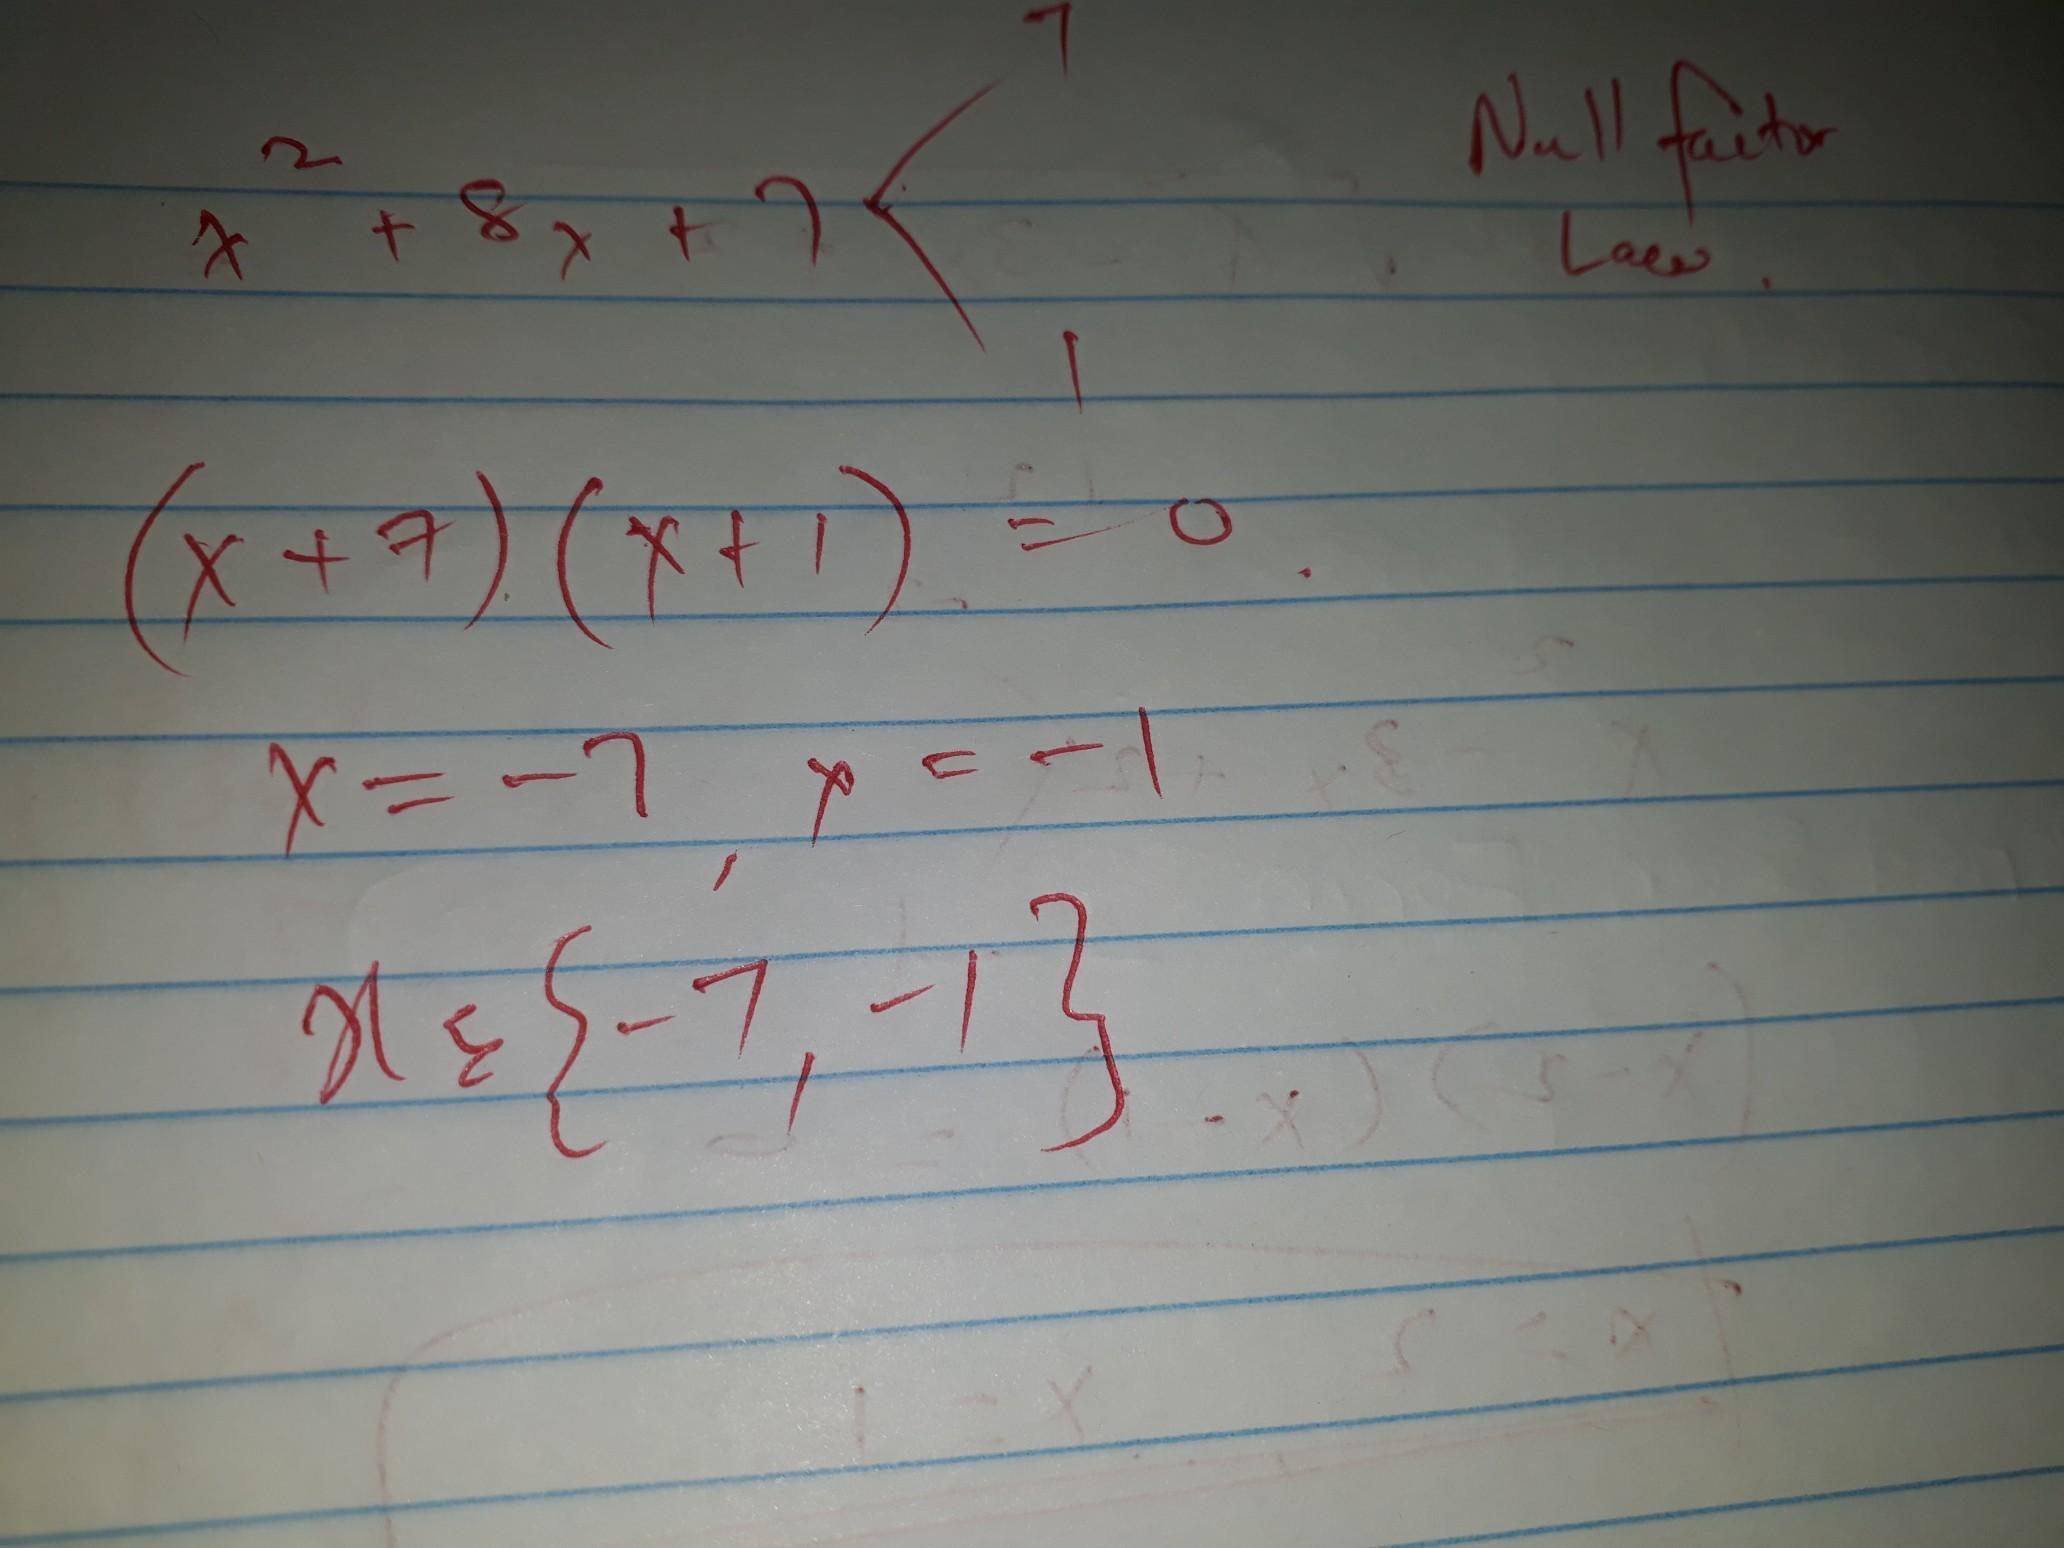 7
x² + 8x + 7 <
Null factor
Law.
1
(x + 7) (x + 1) = 0.
x = -7, x = -1
x ε {-7, -1}